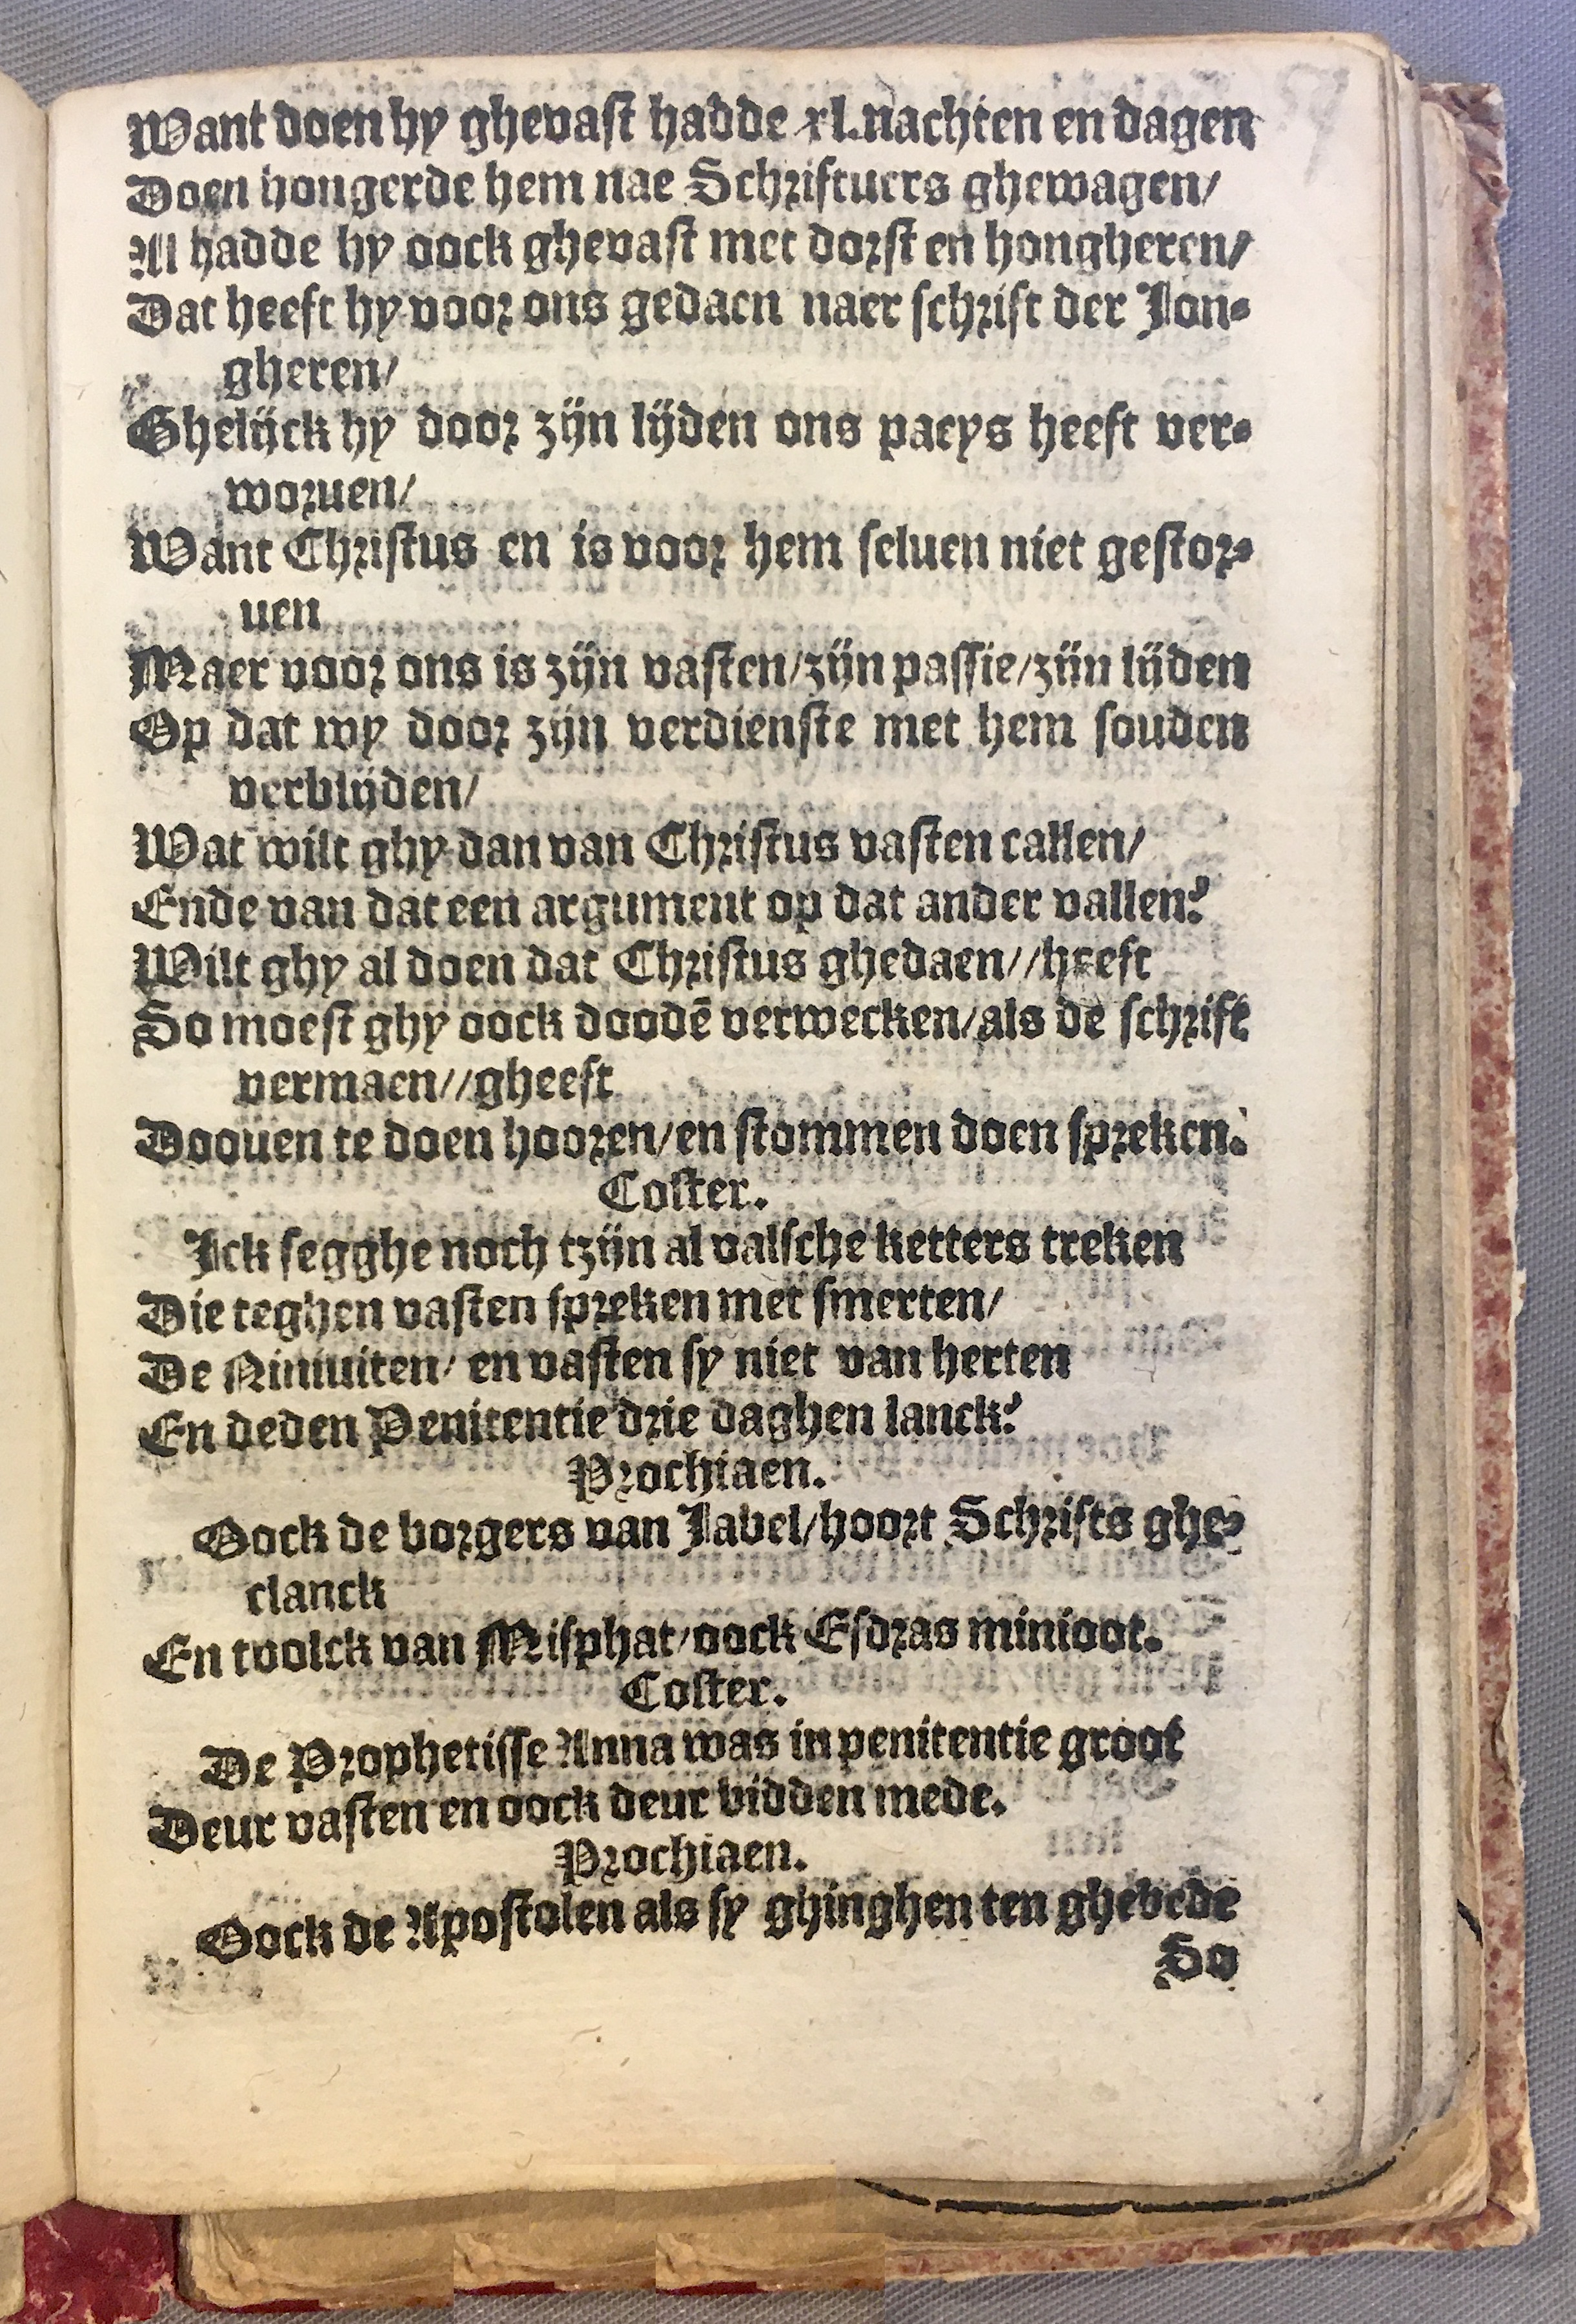 Want doen hy ghevast hadde xl.nachten en dagen
Doen hongerde hem nae Schriftuers ghewagen/
Al hadde hy oock ghevast met dorst en hongheren/
Dat heeft hy voor ons gedaen naer schrift der Jon-
gheren/
Ghelijck hy door zijn lijden ons paeys heeft ver-
woruen/
Want Christus en is voor hem seluen niet gestor-
uen
Maer voor ons is zijn vasten/zijn passie/zijn lijden
Op dat wy door zijn verdienste met hem souden
verblijden/
Wat wilt ghy dan van Christus vasten callen/
Ende van dat een argument op dat ander vallen?
Wilt ghy al doen dat Christus ghedaen//heeft
So moest ghy oock doodē verwecken/als de schrift
vermaen//gheeft
Doouen te doen hooren/en stommen doen spreken.
Coster.
Ick segghe noch tzijn al valsche ketters treken
Die teghen vasten spreken met smerten/
De Niniuiten/ en vasten sy niet van herten
En deden Penitentie drie daghen lanck?
Prochiaen.
Oock de borgers van Jabel/hoort Schrifts ghe-
clanck
En tvolck van Misphat/oock Esdras minioot.
Coster.
De Prophetisse Anna was in penitentie groot
Deur vasten en oock deur bidden mede.
Prochiaen.
Oock de Apostolen als sy ghinghen ten ghebede
So